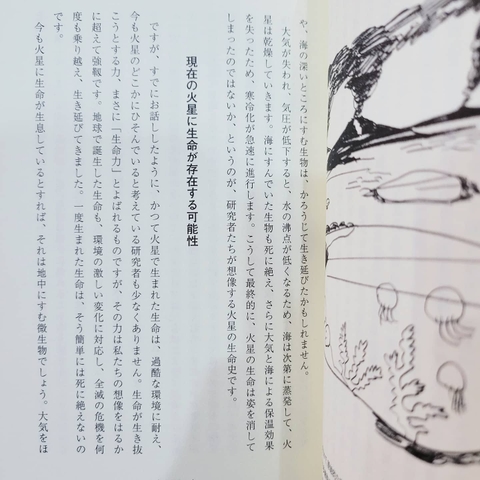 や、海の深いところにすむ生物は、かろうじて生き延びたかもしれません。
大気が失われ、気圧が低下すると、水の沸点が低くなるため、海は次第に蒸発して、火
星は乾燥していきます。海にすんでいた生物も死に絶え、さらに大気と海による保温効果
を失ったため、寒冷化が急速に進行します。こうして最終的に、火星の生命は姿を消して
しまったのではないか、というのが、研究者たちが想像する火星の生命史です。
現在の火星に生命が存在する可能性
ですが、すでにお話ししたように、かつて火星で生まれた生命は、過酷な環境に耐え、
今も火星のどこかにひそんでいると考えている研究者も少なくありません。生命が生き抜
こうとする力、まさに「生命力」とよばれるものですが、その力は私たちの想像をはるか
に超えて強靱です。地球で誕生した生命も、環境の激しい変化に対応し、全滅の危機を何
度も乗り越え、生き延びてきました。一度生まれた生命は、そう簡単には死に絶えないの
です。
今も火星に生命が生息しているとすれば、それは地中にすむ微生物でしょう。大気をほ